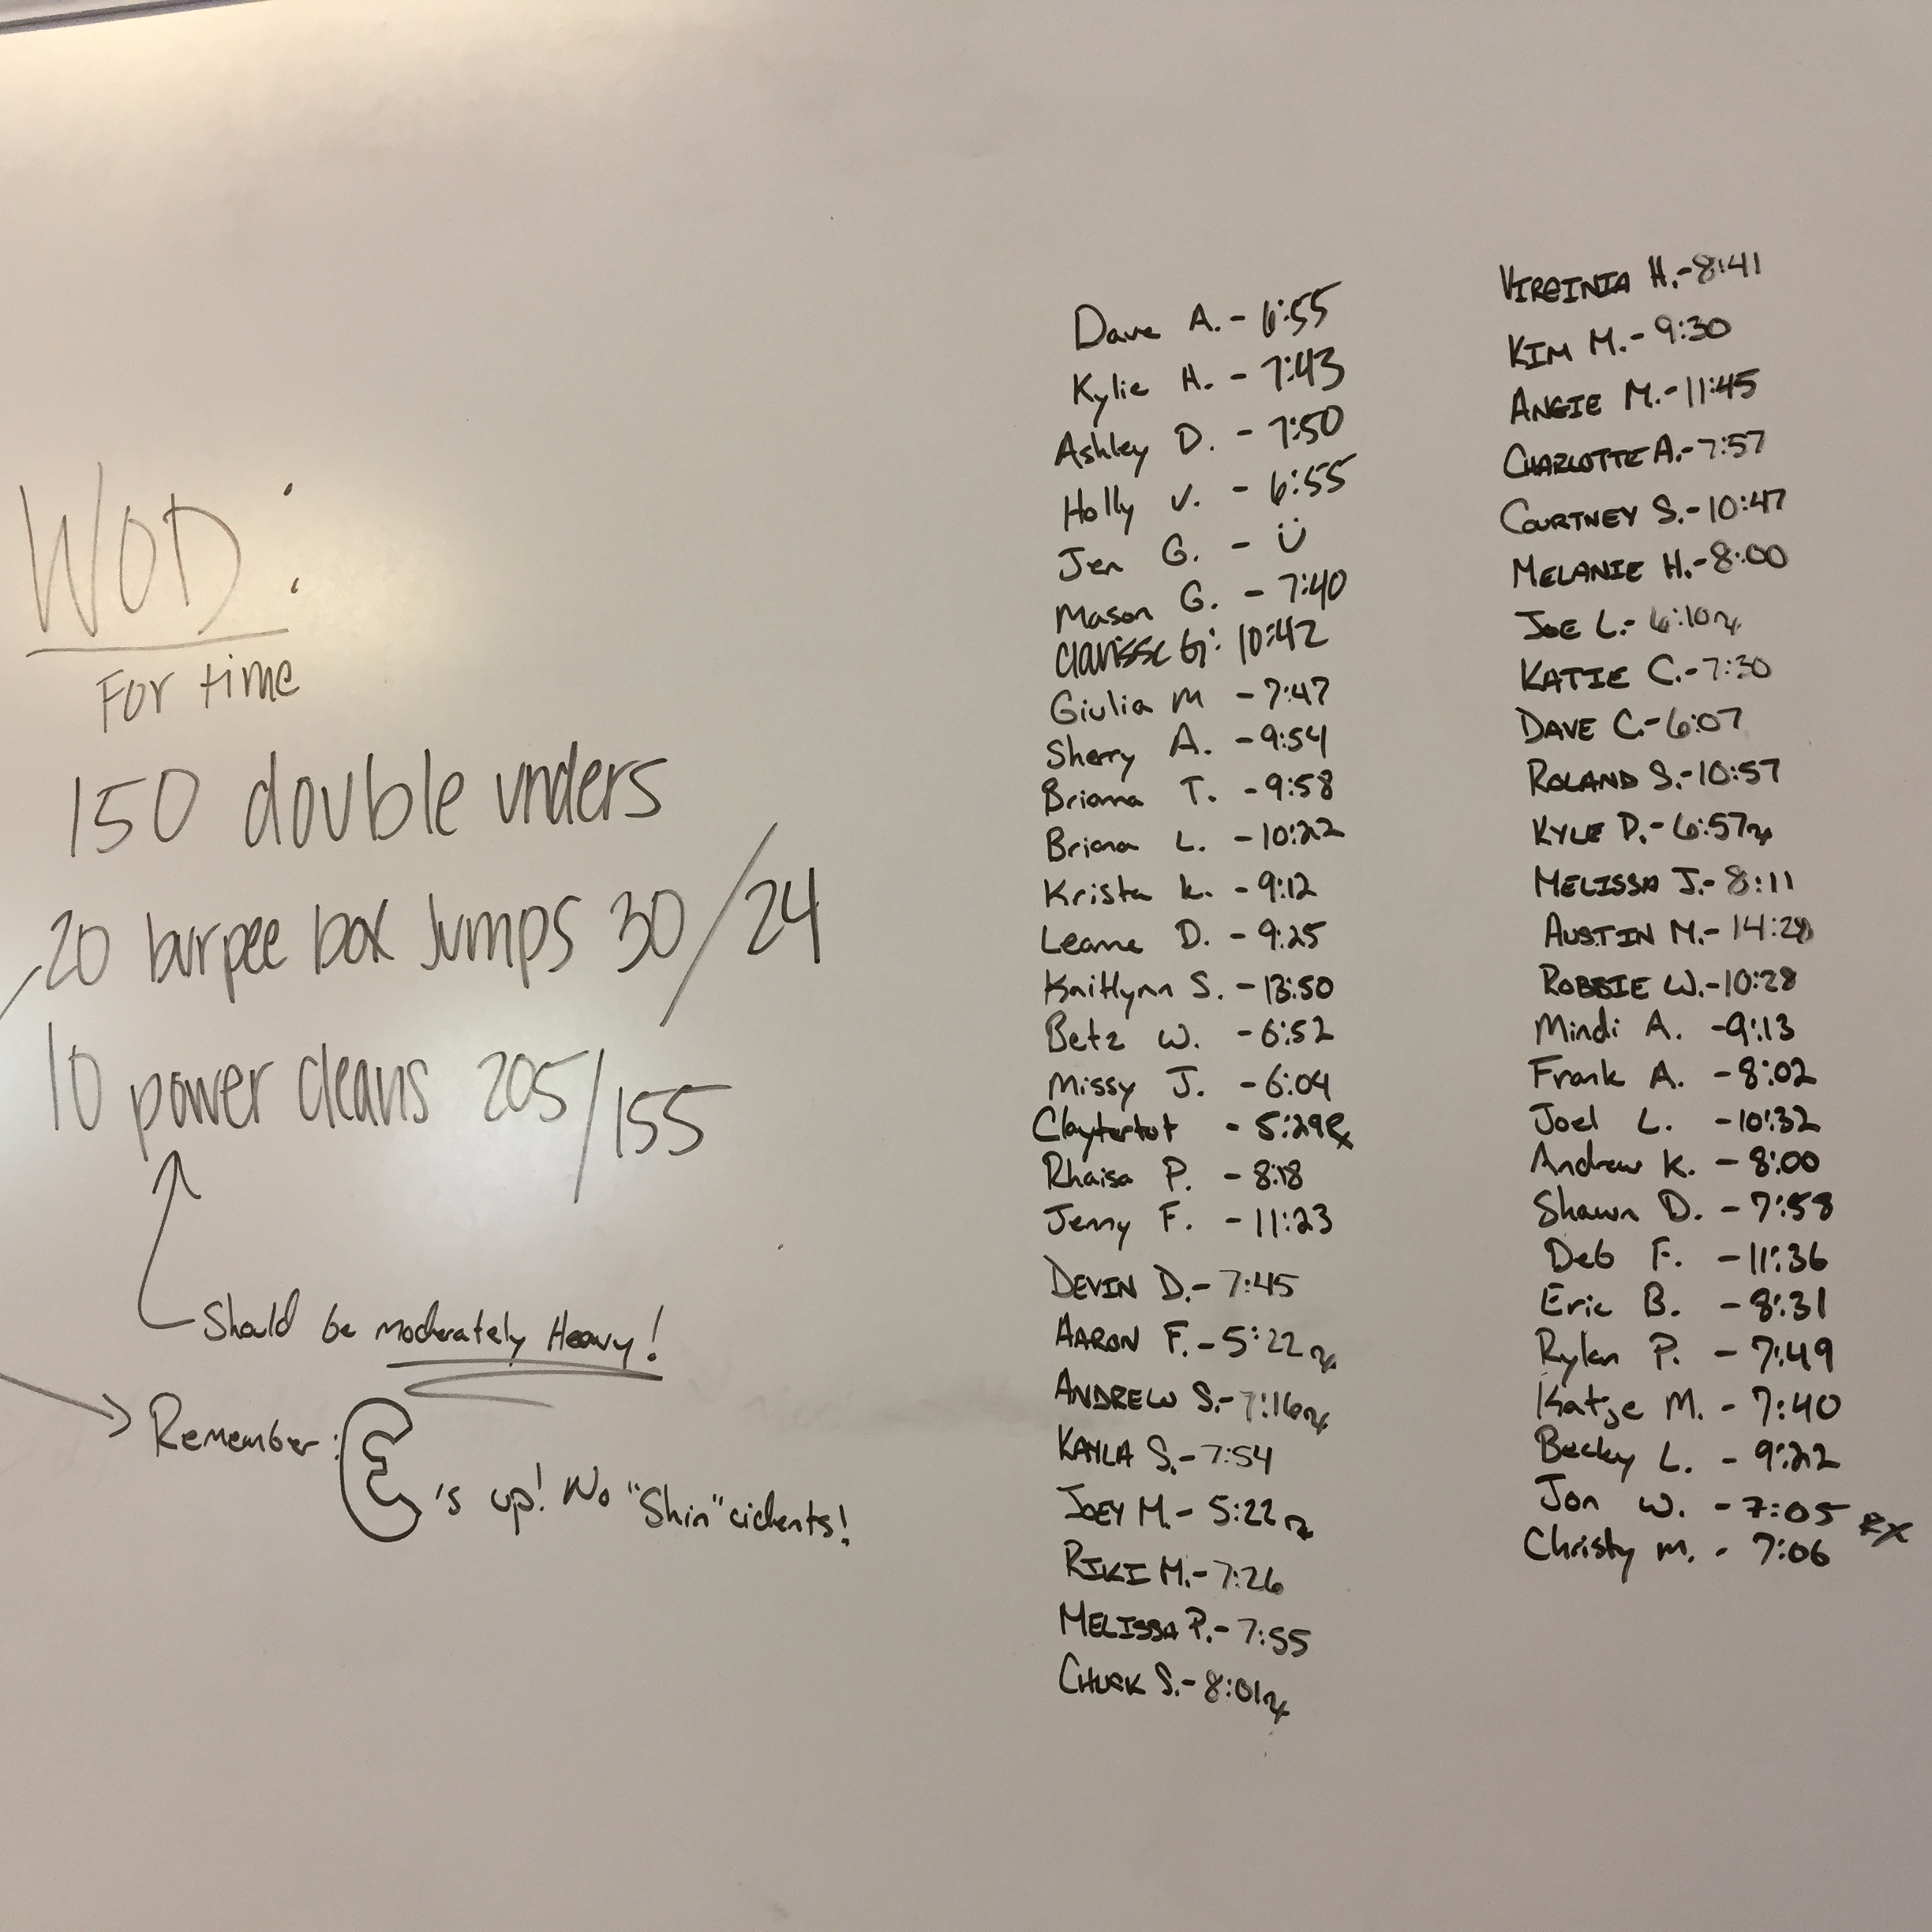 WOD:
For time
150 double unders
20 burpee box Jumps 30/24
10 power cleans 205/155
Should be moderately Heavy!
Remember: 's up! No "Shin"cidents!
Dave A. - 6:55
Kylie H. - 7:43
Ashley D. - 7:50
Holly V. - 6:55
Jen G. - Ü
Mason G. - 7:40
Clarisse G: 10:42
Giulia M - 7:47
Sherry A. - 9:54
Briana T. - 9:58
Briana L. - 10:22
Krista K. - 9:12
Leanne D. - 9:25
Kaitlynn S. - 13:50
Betz W. - 6:52
Missy J. - 6:04
Claytertot - 5:29 Rx
Rhaisa P. - 8:18
Jenny F. - 11:23
DEVIN D. - 7:45
AARON F. - 5:22 Rx
ANDREW S. - 7:16 Rx
KAYLA S. - 7:54
JOEY M. - 5:22 Rx
RIKI M. - 7:26
MELISSA P. - 7:55
CHUCK S. - 8:01 Rx
VIRGINIA H. - 8:41
KIM M. - 9:30
ANGIE M. - 11:45
CHARLOTTE A. - 7:57
COURTNEY S. - 10:47
MELANIE H. - 8:00
JOE L. - 6:10 Rx
KATIE C. - 7:30
DAVE C. - 6:07
ROLAND S. - 10:57
KYLE D. - 6:57 Rx
MELISSA J. - 8:11
AUSTIN M. - 14:28
ROBBIE W. - 10:28
Mindi A. - 9:13
Frank A. - 8:02
Joel L. - 10:32
Andrew K. - 8:00
Shawn D. - 7:58
Deb F. - 11:36
Eric B. - 8:31
Rylan P. - 7:49
Katje M. - 7:40
Becky L. - 9:22
Jon W. - 7:05 RX
Christy M. - 7:06